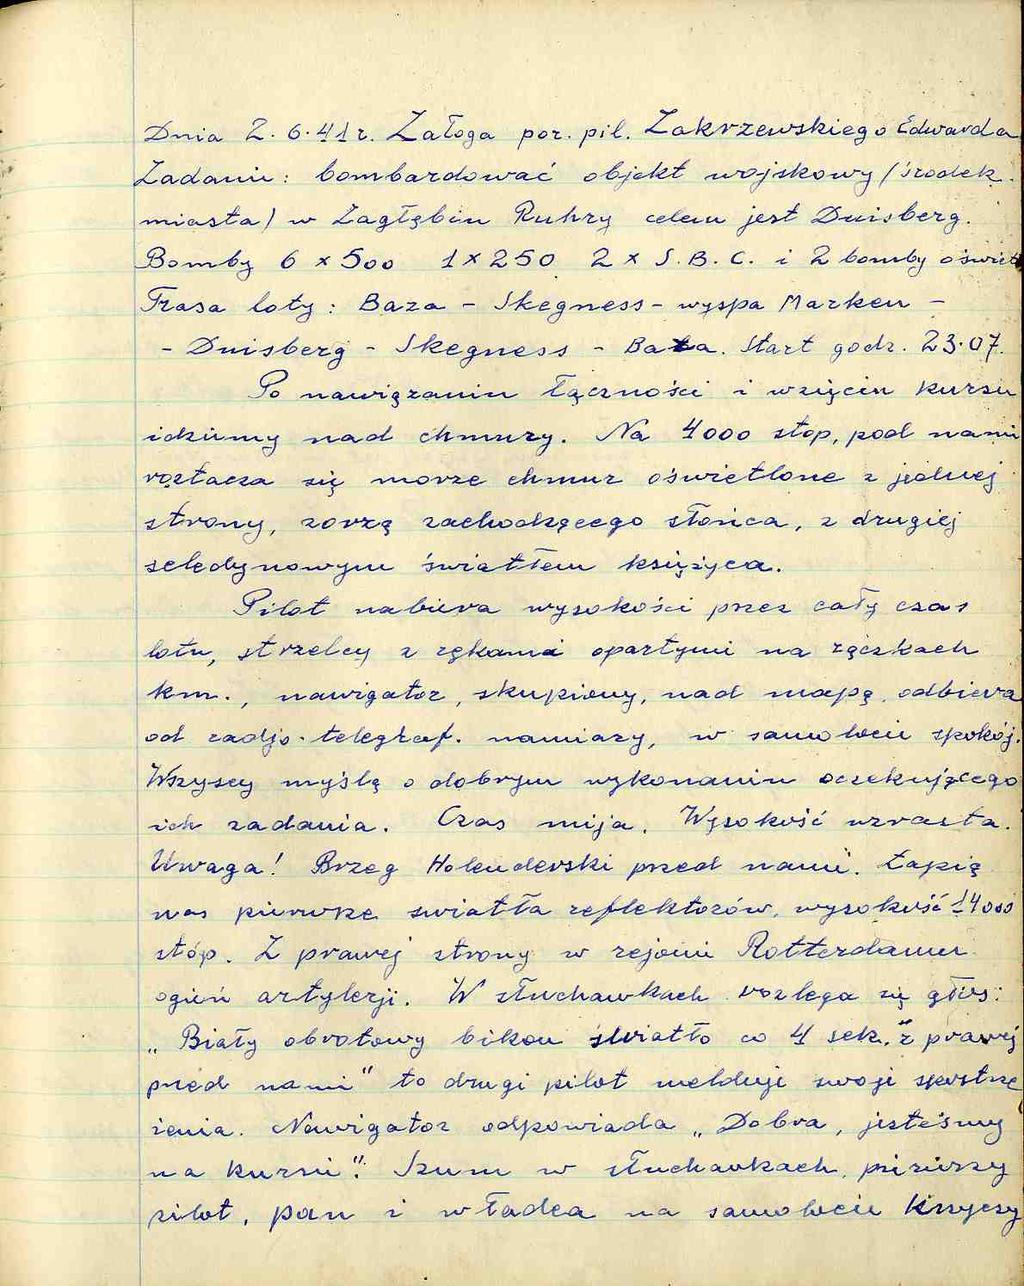 Dnia 2.6.41 r. Załoga por. pil. Zakrzewskiego Edwarda
Zadanie: bombardować objekt wojskowy /środek
miasta/ w Zagłębiu Ruhry celem jest Duisberg.
Bomby 6 x 500 1 x 250 2 x S.B.C. i 2 bomby oświet
Trasa loty: Baza - Skegness - wyspa Marken -
- Duisberg - Skegness - Baza. Start godz. 23.07.
Po nawiązaniu łączności i wzięciu kursu
idziemy nad chmury. Na 4000 stóp, pod nami
roztacza się morze chmur oświetlone z jednej
strony, zorzą zachodzącego słońca, z drugiej
seledynowym światłem księżyca.
Pilot nabiera wysokości przez cały czas
lotu, strzelcy z rękami opartymi na rączkach
km., nawigator, skupiony, nad mapą, odbiera
od radjo-telegraf. namiary, w samolocie spokój.
Wszyscy myślą o dobrym wykonaniu oczekującego
ich zadania. Czas mija. Wysokość wzrasta.
Uwaga! Brzeg Holenderski przed nami. Łapią
nas pierwsze światła reflektorów, wysokość 14000
stóp. Z prawej strony w rejonie Rotterdamu
ogień artylerji. W słuchawkach rozlega się głos:
„Biały obrotowy bikon światło co 4 sek. z prawej
przed nami" to drugi pilot melduje swoje spostrze
żenia. Nawigator odpowiada „Dobra, jesteśmy
na kursie". Szum w słuchawkach, pierwszy
pilot, pan i władca na samolocie krzyczy